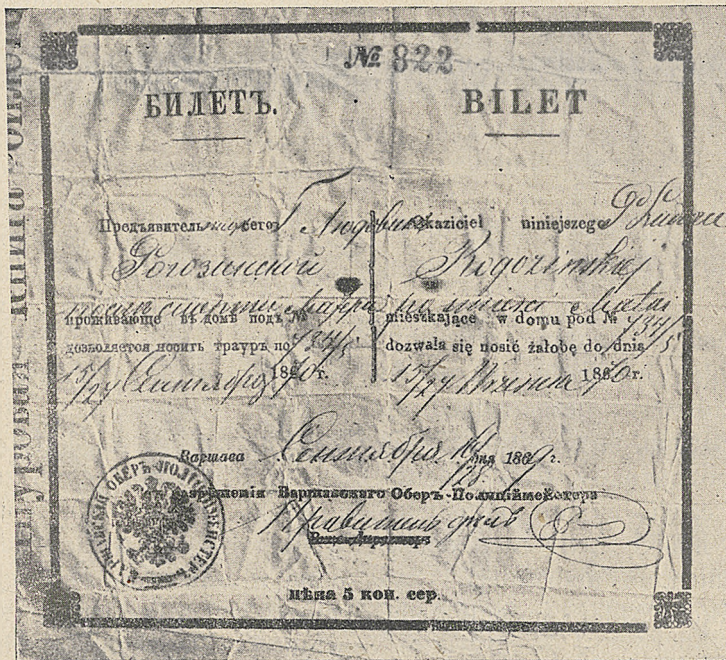 № 822
БИЛЕТЪ.
BILET
Предъявитель сего Г Людвика
Рогозинской
проживающе въ домѣ подъ №
дозволяется носить трауръ по
15/27 Сентября 1870 г.
okaziciel niniejszego P Ludwice
Rogozinskiej
po śmierci Matki
mieszkające w domu pod № 734/5
dozwala się nosić żałobę do dnia
15/27 Września 1870 r.
Варшава Сентября дня 1869 г.
Варшавскаго Оберъ-Полиціймейстера
Правитель дѣлъ
цѣна 5 коп. сер.